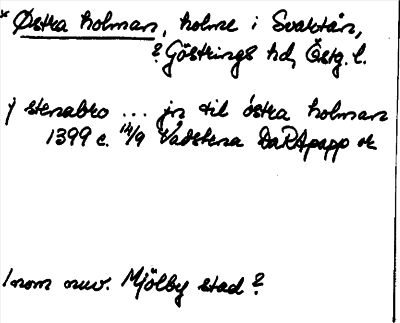 * Östra holman, holme i Svartån,
? Göstrings hd, Östg. l.
j stenabro ... jn til östra holman
1399 c. 14/9 Vadstena DaRApapp or
Inom nuv. Mjölby stad ?